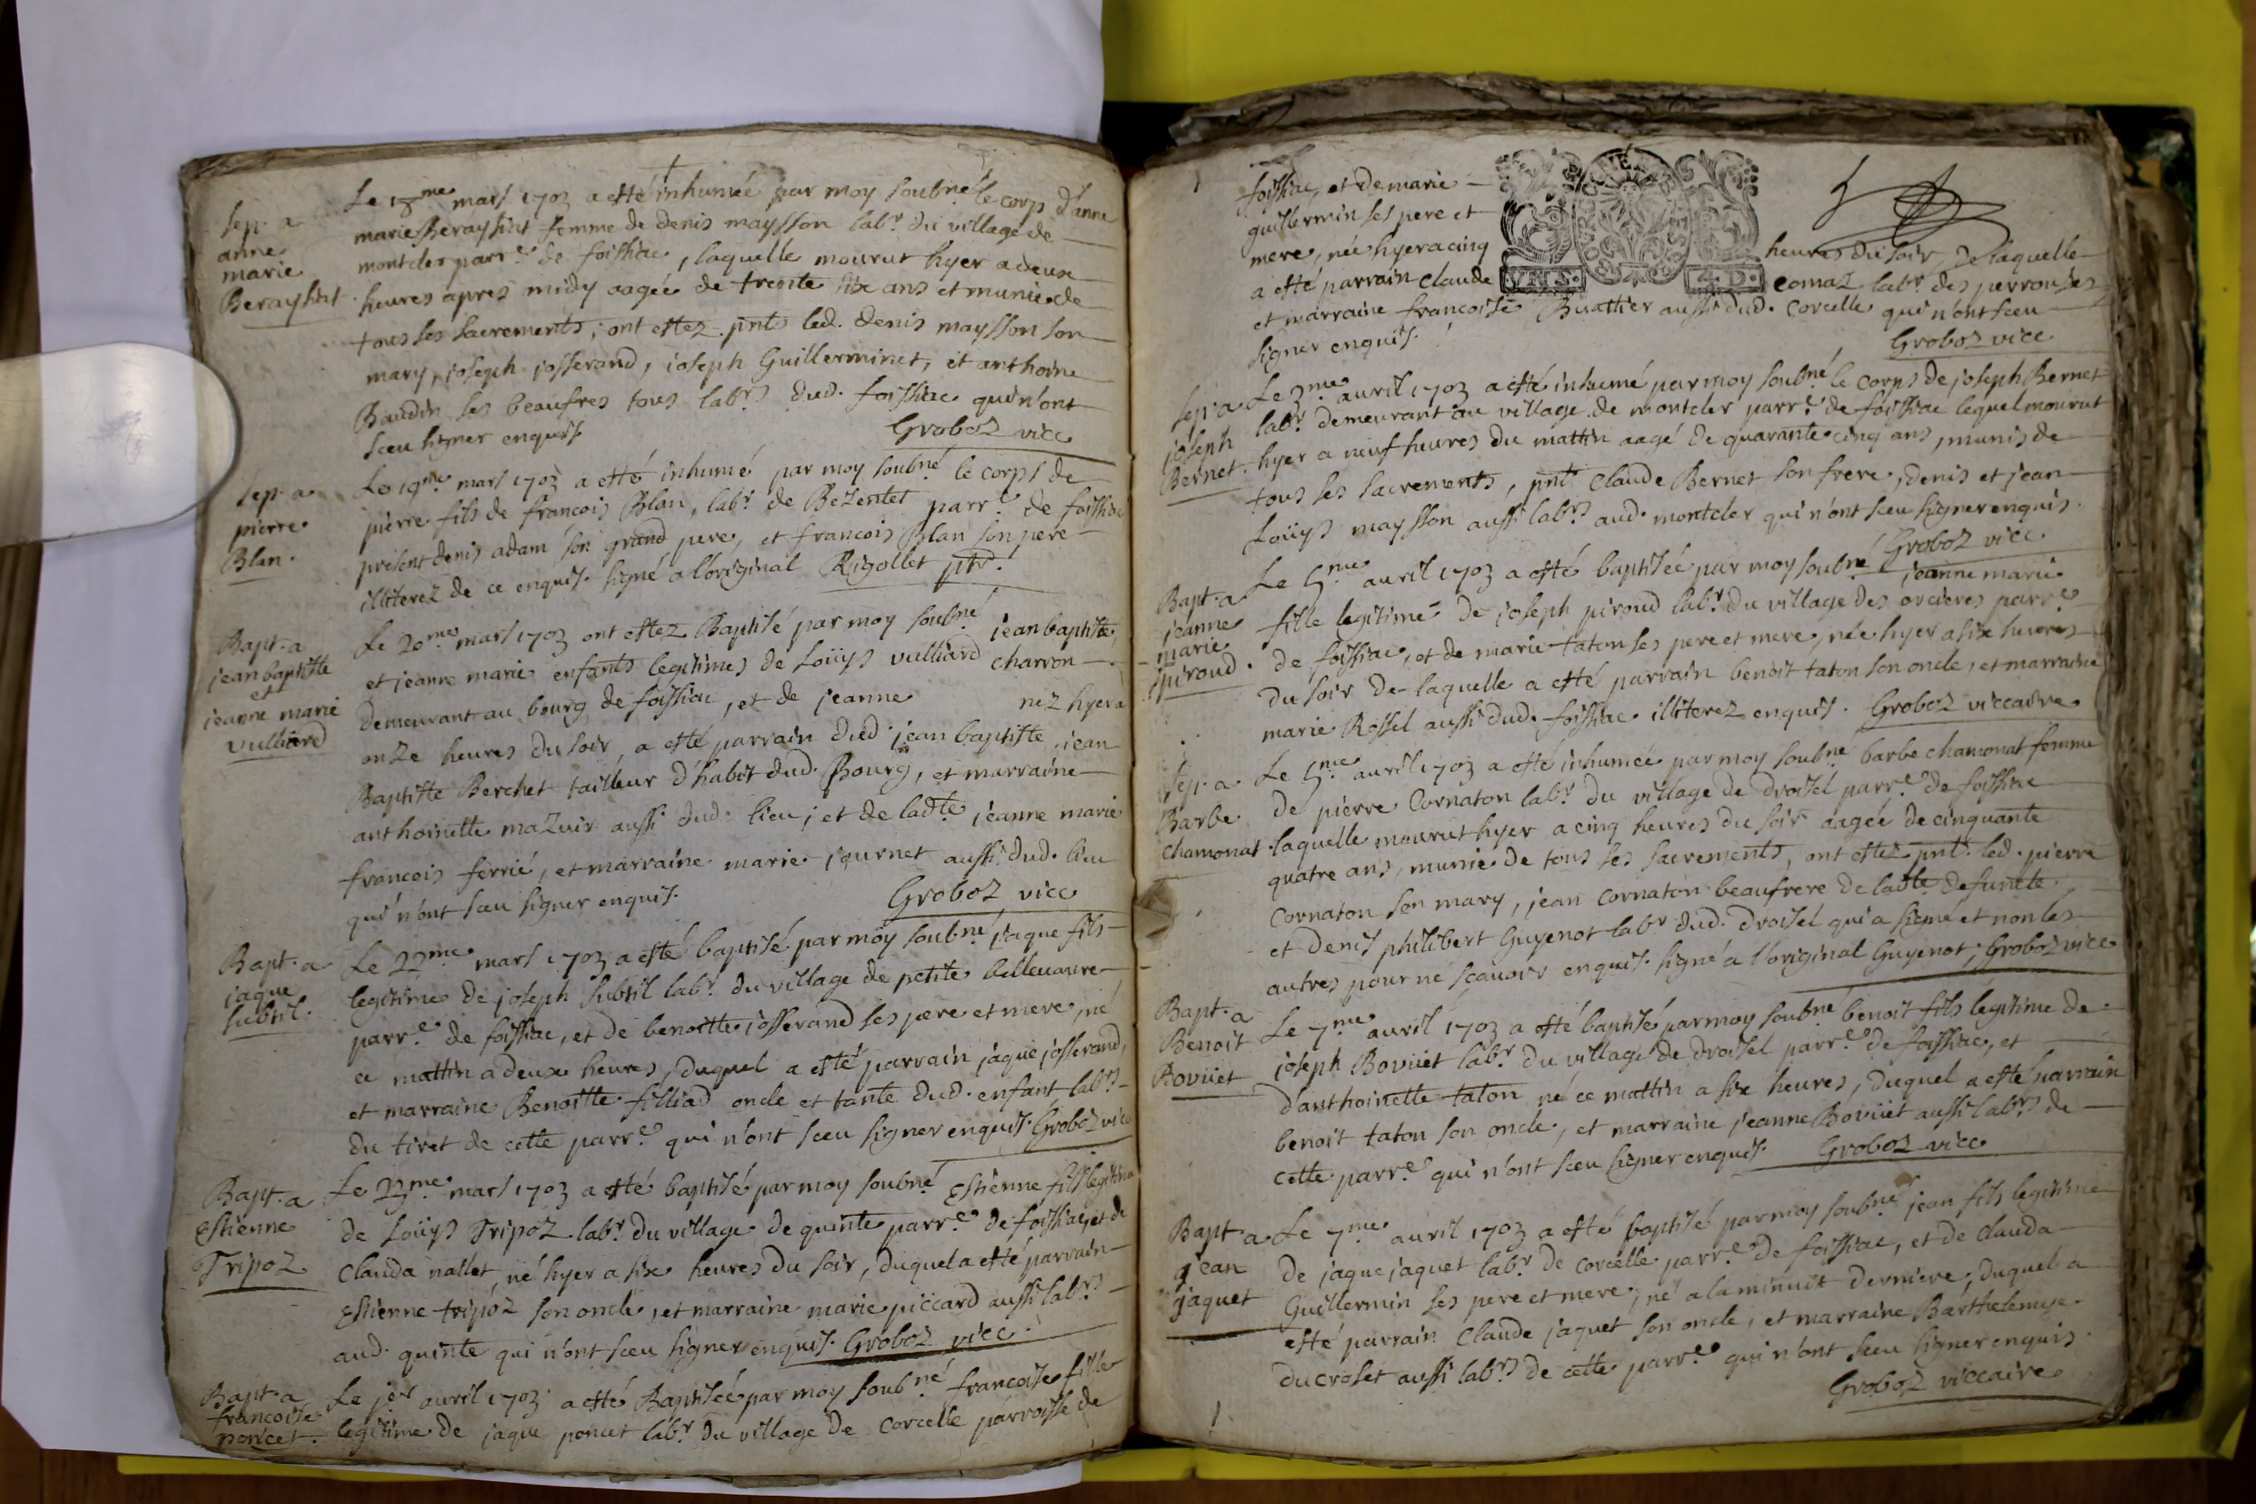 Sep. a
anne
marie
Berayshit
Le 18me mars 1703 a esté inhumée par moy soubné le corps d'anne
marie Berayshit femme de denis maysson labr. du village de
montcler parre. de foissiac, laquelle mourut hyer a deux
heures apres midy aagée de trente six ans et munie de
tous ses sacrements, ont estez pnts led. denis maysson son
mary, joseph josserand, joseph Guillerminet, et anthoine
Baudin ses beaufres tous labrs. dud. foissiac qui n'ont
sceu signer enquis. Groboz vicc
Sep. a
pierre
Blan.
Le 19me mars 1703 a esté inhumé par moy soubné le corps de
pierre fils de francois Blan, labr. de Bezentet parre. de foissiac
present denis adam son grand pere, et francois Blan son pere
illiterez de ce enquis. signé a l'original Rigollet ptr.
Bapt. a
jean baptiste
et
jeanne marie
Vulliard
Le 20me mars 1703 ont estez Baptisé par moy soubné jean baptiste,
et jeanne marie enfants legitimes de Loüys vulliard charron
demeurant au bourg de foissiac, et de jeanne nez hyer a
onze heures du soir, a esté parrain dud. jean baptiste, jean
Baptiste Berchet tailleur d'habit dud. Bourg, et marraine
anthoinette mazuir aussi dud. lieu; et de ladte jeanne marie
francois ferrié, et marraine marie journet aussi dud. lieu
qui n'ont sceu signer enquis. Groboz vicc
Bapt. a
jaque
subtil.
Le 22me mars 1703 a esté baptisé par moy soubné jaque fils
legitime de joseph subtil labr. du village de petite bellevavre
parre. de foissiac, et de benoitte josserand ses pere et mere, né
ce mattin a deux heures, duquel a esté parrain jaque josserand,
et marraine Benoitte filliad oncle et tante dud. enfant labrs.
du tiret de cette parre. qui n'ont sceu signer enquis. Groboz vicc
Bapt. a
Estienne
Tripoz
Le 23me mars 1703 a esté baptisé par moy soubné Estienne fils legitime
de Loüys Tripoz labr. du village de quinte parre. de foissiac, et de
Clauda nallet, né hyer a six heures du soir, duquel a esté parrain
Estienne tripoz son oncle, et marraine marie piccard aussi labrs.
aud. quinte qui n'ont sceu signer enquis. Groboz vicc
Bapt. a
francoise
poncet.
Le jer avril 1703 a esté Baptisée par moy soubné francoise fille
legitime de jaque poncet labr. du village de Corcelle parroisse de
foissiac, et de marie
guillermin ses pere et
mere, née hyer a cinq heures du soir, de laquelle
a esté parrain Claude comaz labr. des perrouses
et marraine francoise Buathier aussi dud. Corcelle qui n'ont sceu
signer enquis. Groboz vicc
Sep. a
joseph
Bernet.
Le 3me avril 1703 a esté inhumé par moy soubné le corps de joseph Bernet
labr. demeurant au village de montcler parre. de foissiac lequel mourut
hyer a neuf heures du mattin aagé de quarante cinq ans, munis de
tous ses sacrements, pnts Claude Bernet son frere, denis et jean
Loüys maysson aussi labrs. aud. montcler qui n'ont sceu signer enquis.
Groboz vicc.
Bapt. a
jeanne
marie
piroud.
Le 5me avril 1703 a esté baptisée par moy soubné jeanne marie
fille legitime de joseph piroud labr. du village des orcieres parre.
de foissiac, et de marie taton ses pere et mere, née hyer a six heures
du soir de laquelle a esté parrain benoit taton son oncle, et marraine
marie Rossel aussi dud. foissiac illiterez enquis. Groboz viccaire
Sep. a
Barbe
Chamonat.
Le 5me avril 1703 a esté inhumée par moy soubné barbe chamonat femme
de pierre Cornaton labr. du village de droisel parre. de foissiac
laquelle mourut hyer a cinq heures du soir aagée de cinquante
quatre ans, munie de tous ses sacrements, ont estez pnts led. pierre
Cornaton son mary, jean Cornaton beaufrere de ladte defuncte
et denis philibert Guyenot labr. dud. droisel qui a signé et non les
autres pour ne scavoir enquis. signé a l'original Guyenot, Groboz vicc
Bapt. a
Benoit
Boviiet
Le 7me avril 1703 a esté baptisé par moy soubné benoit fils legitime de
joseph Boviiet labr. du village de droisel parre. de foissiac, et
d'anthoinette taton né ce mattin a six heures, duquel a esté parrain
benoit taton son oncle, et marraine jeanne Boviiet aussi labrs. de
cette parre. qui n'ont sceu signer enquis. Groboz vicc
Bapt. a
jean
jaquet
Le 7me avril 1703 a esté baptisé par moy soubné jean fils legitime
de jaque jaquet labr. de corcelle parre. de foissiac, et de Clauda
Guillermin ses pere et mere, né a la minuit derniere, duquel a
esté parrain Claude jaquet son oncle, et marraine Barthelemye
ducroset aussi labrs. de cette parre. qui n'ont sceu signer enquis.
Groboz viccaire